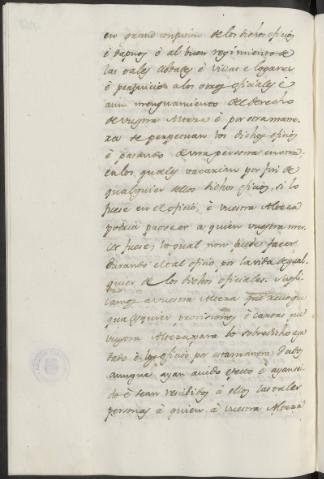 en grand confusion de los dichos oficios
è dapnos è al buen regimiento de
las tales cibdades è villas è logares
è perjuicio a los otros oficiales è
aun menguamiento del derecho
de vuestra Alteza è por esta mane
ra se perpetuan los dichos oficios
è pasando de una persona en otra
en los quales vacarian por fin de
qualquier dellos dichos oficios, si lo
fuese en el oficio, è vuestra Alteza
podria proveer a quien vuestra mer
ced fuese, lo qual non puede facer
durando el tal oficio por la vida de qual
quier de los dichos oficiales. Supli
camos a vuestra Alteza que revoque
qualesquier provisiones è cartas que
vuestra Alteza para lo sobredicho aya
dado è los oficios por esta manera dados
aunque ayan avido efecto è ayan sey
do è sean recibidos à ellos las tales
personas à quien à vuestra Alteza